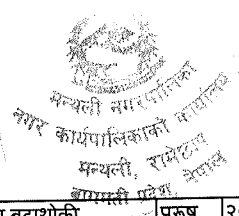 मन्थली नगरपालिका
नगर कार्यपालिकाको कार्यालय
मन्थली, रामेछाप
बागमती प्रदेश, नेपाल
पुरूष